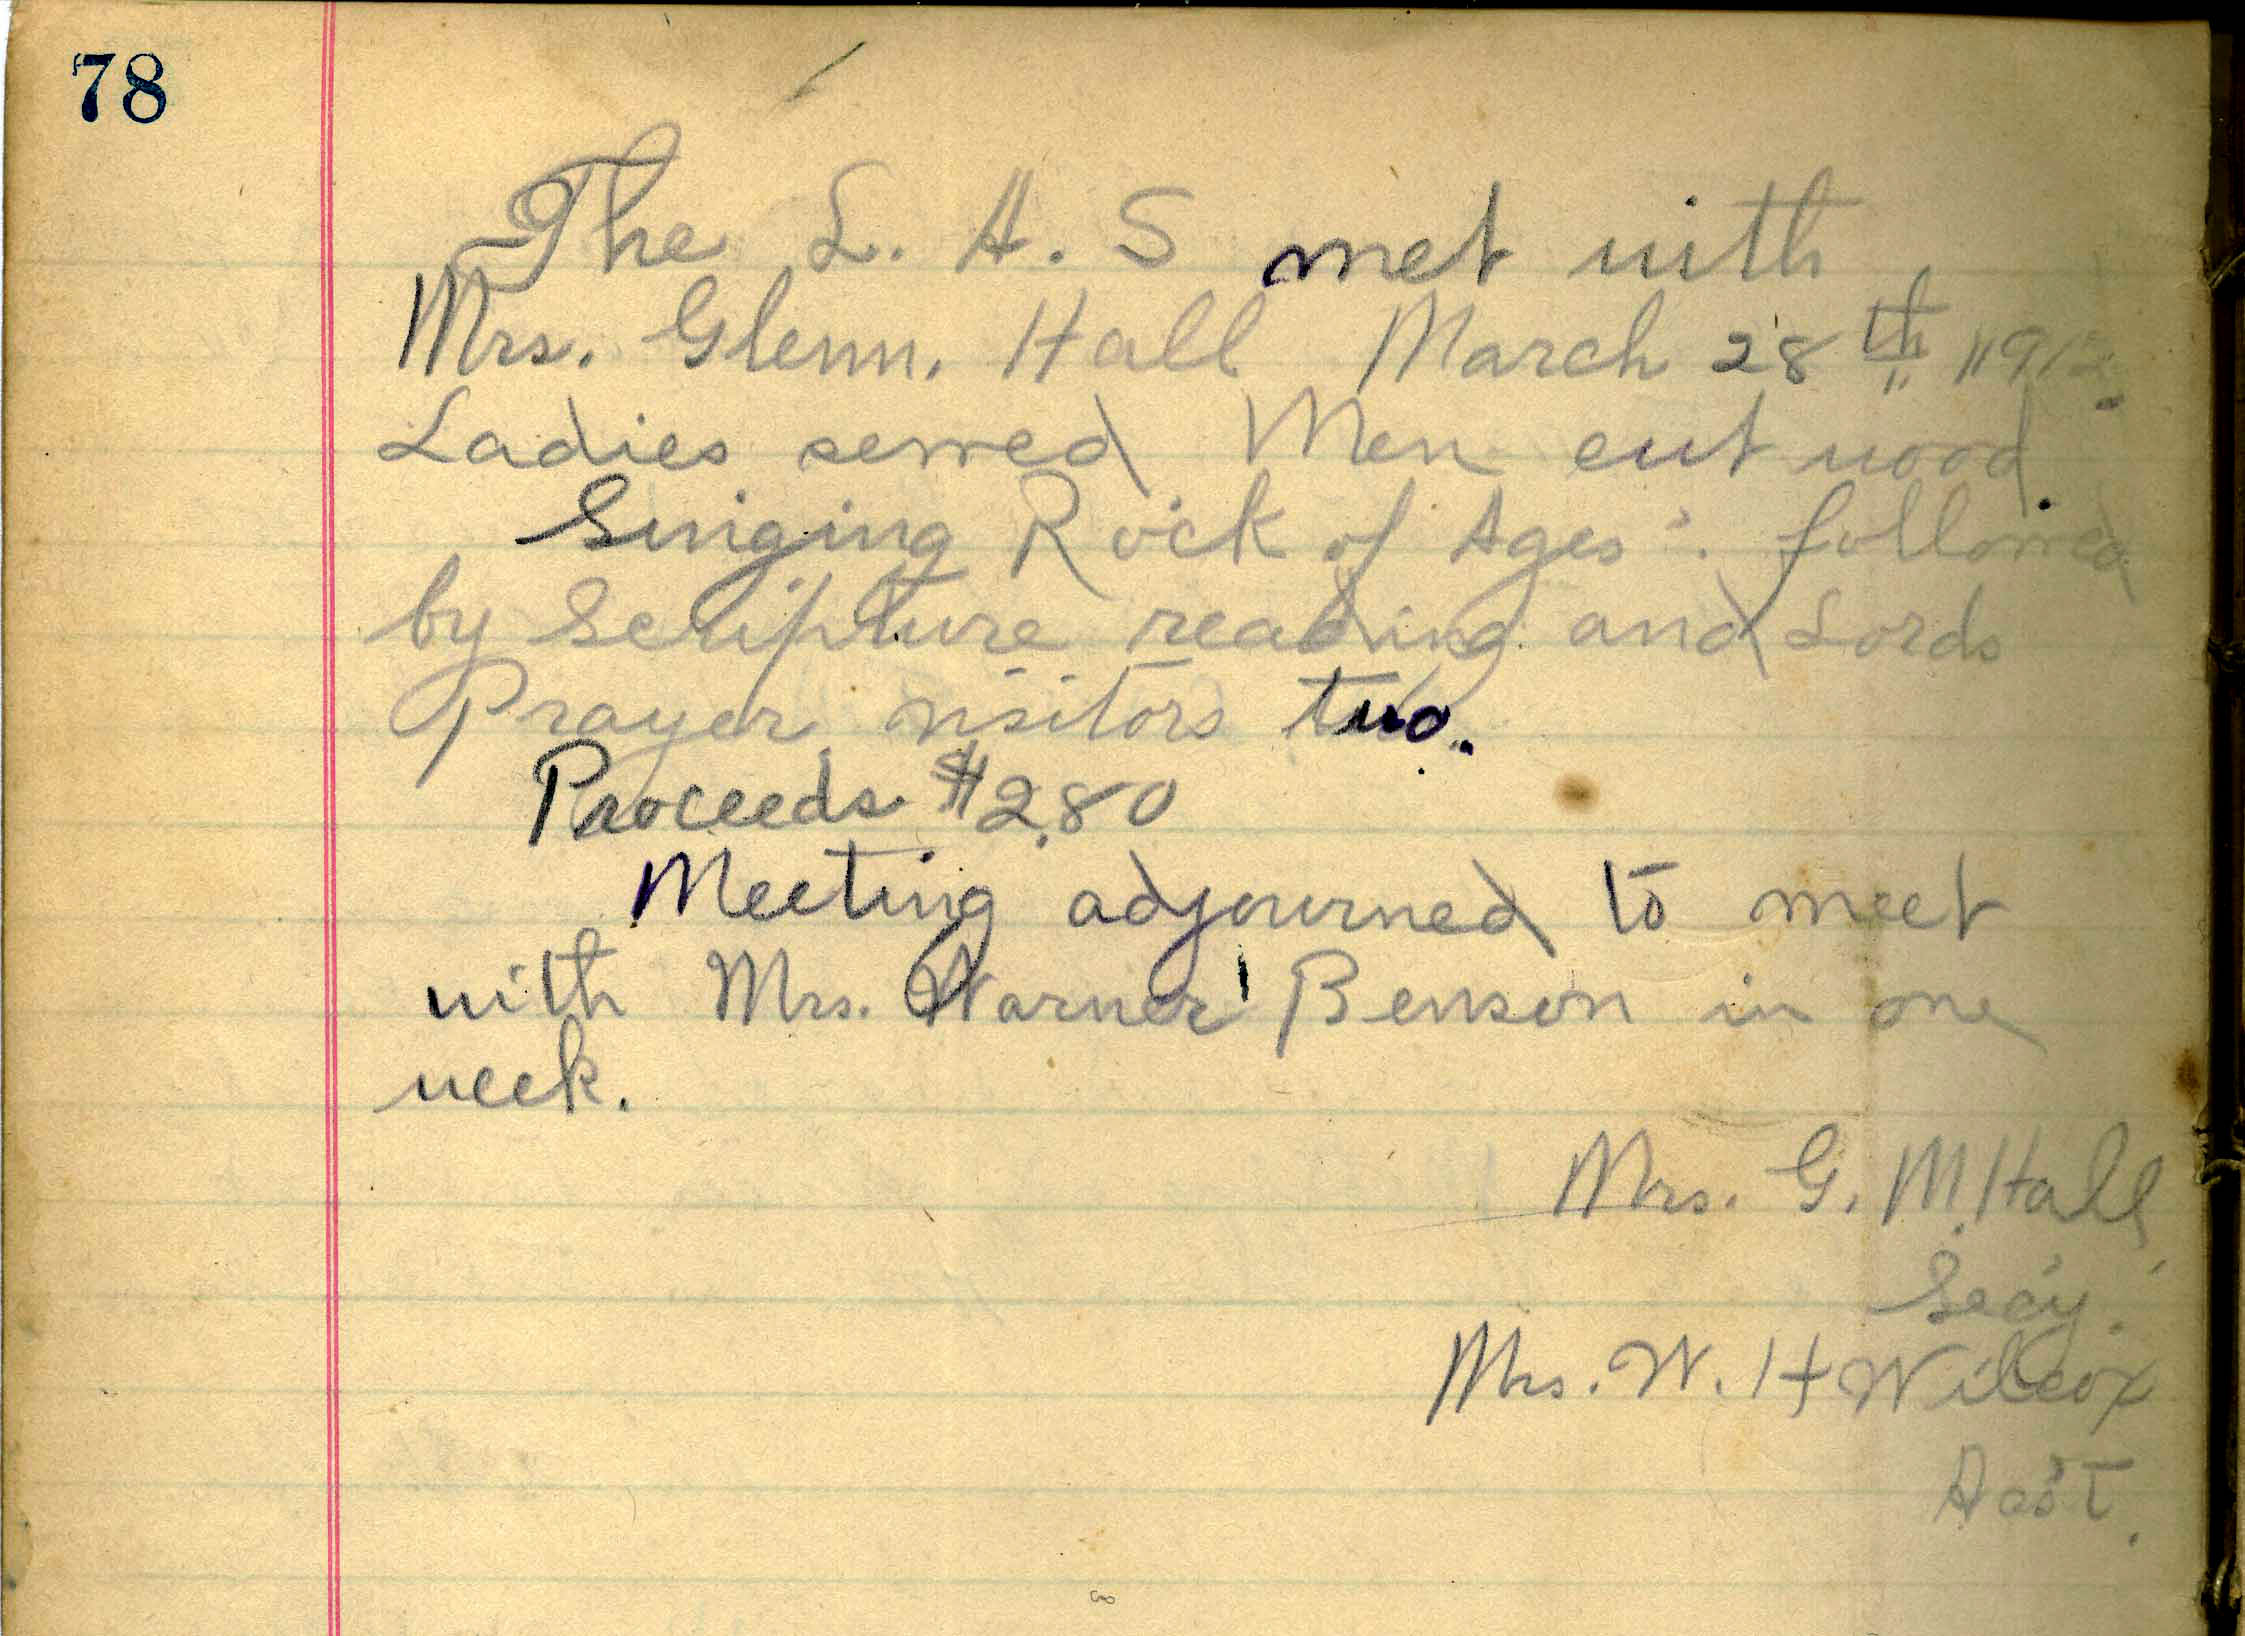 78
The L. A. S met with
Mrs. Glenn. Hall March 28th 1912
Ladies sewed Men cut wood
Singing Rock of Ages". followed
by Scripture reading and Lords
Prayer visitors two.
Proceeds $2.80
Meeting adjourned to meet
with Mrs. Warner Benson in one
week.
Mrs. G. M. Hall
Sec'y.
Mrs. W. H Wilcox
Ass't.